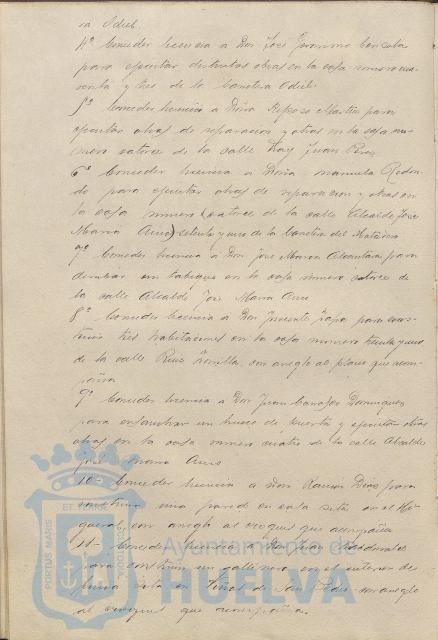 ra Odiel.
4º Conceder licencia a Don José Jeronimo
para ejecutar distintas obras en la casa numero cua-
renta y tres de la Carretera Odiel.
5º Conceder licencia a Doña Reposo Martin para
ejecutar obras de reparacion y otras en la casa nu-
mero catorce de la calle Fray Juan Perez
6º Conceder licencia a Doña Manuela Redon-
do para ejecutar obras de reparacion y otras en
la casa numero (catorce de la calle Alcalde José
Maria Amo) setenta y uno de la Carretera del Matadero
7º Conceder licencia a Don José Maria Alcantara para
derribar un tabique en la casa numero catorce de
la calle Alcalde José Maria Amo
8º Conceder licencia a Don Vicente para cons-
truir tres habitaciones en la casa numero treinta y uno
de la calle Ruiz Zorrilla, con arreglo al plano que acom-
paña
9º Conceder licencia a Don Juan Dominguez
para ensanchar un hueco de puerta y ejecutar otras
obras en la casa numero cuatro de la calle Alcalde
José Maria Amo
10- Conceder licencia a Don Ramon Diaz para
construir una pared en casa sita en el Hi-
gueral, con arreglo al croquis que acompaña
11- Conceder licencia a Don
para construir un gallinero en el interior de
finca sita en de San Pedro con arreglo
al croquis que acompaña.
PORTUS MARIS ET TERRÆ CUSTODIA
Ayuntamiento de
HUELVA